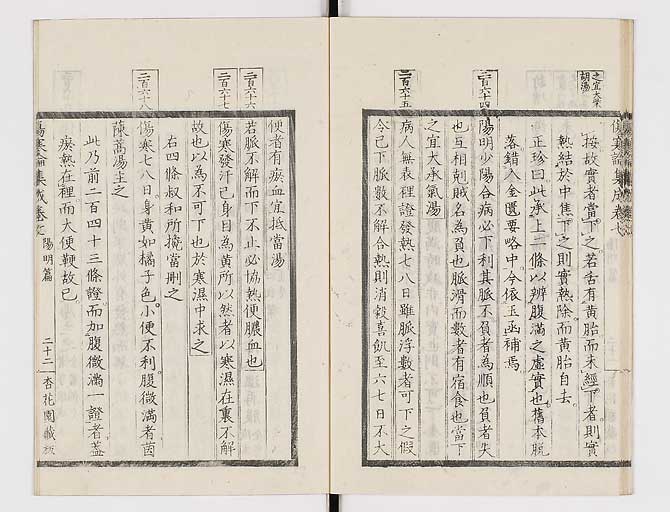 傷寒論集成卷七
按故實者當下之若舌有黃胎而未經下者則實
熱結於中焦下之則實熱除而黃胎自去
正珍曰此承上二條以辨腹滿之虛實也舊本脫
落錯入金匱要略中今依玉函補焉
二百六十四
陽明少陽合病必下利其脈不負者為順也負者失
也互相剋賊名為負也脈滑而數者有宿食也當下
之宜大承氣湯
二百六十五
病人無表裡證發熱七八日雖脈浮數者可下之假
令已下脈數不解合熱則消穀喜飢至六七日不大
便者有瘀血宜抵當湯
二百六十六
若脈不解而下不止必協熱便膿血也
二百六十七
傷寒發汗已身目為黃所以然者以寒濕在裏不解
故也以為不可下也於寒濕中求之
右四條叔和所攙當刪之
二百六十八
傷寒七八日身黃如橘子色小便不利腹微滿者茵
蔯蒿湯主之
此乃前二百四十三條證而加腹微滿一證者蓋
瘀熱在裡而大便鞕故已
傷寒論集成卷七 陽明篇 二十二 杏花園藏板